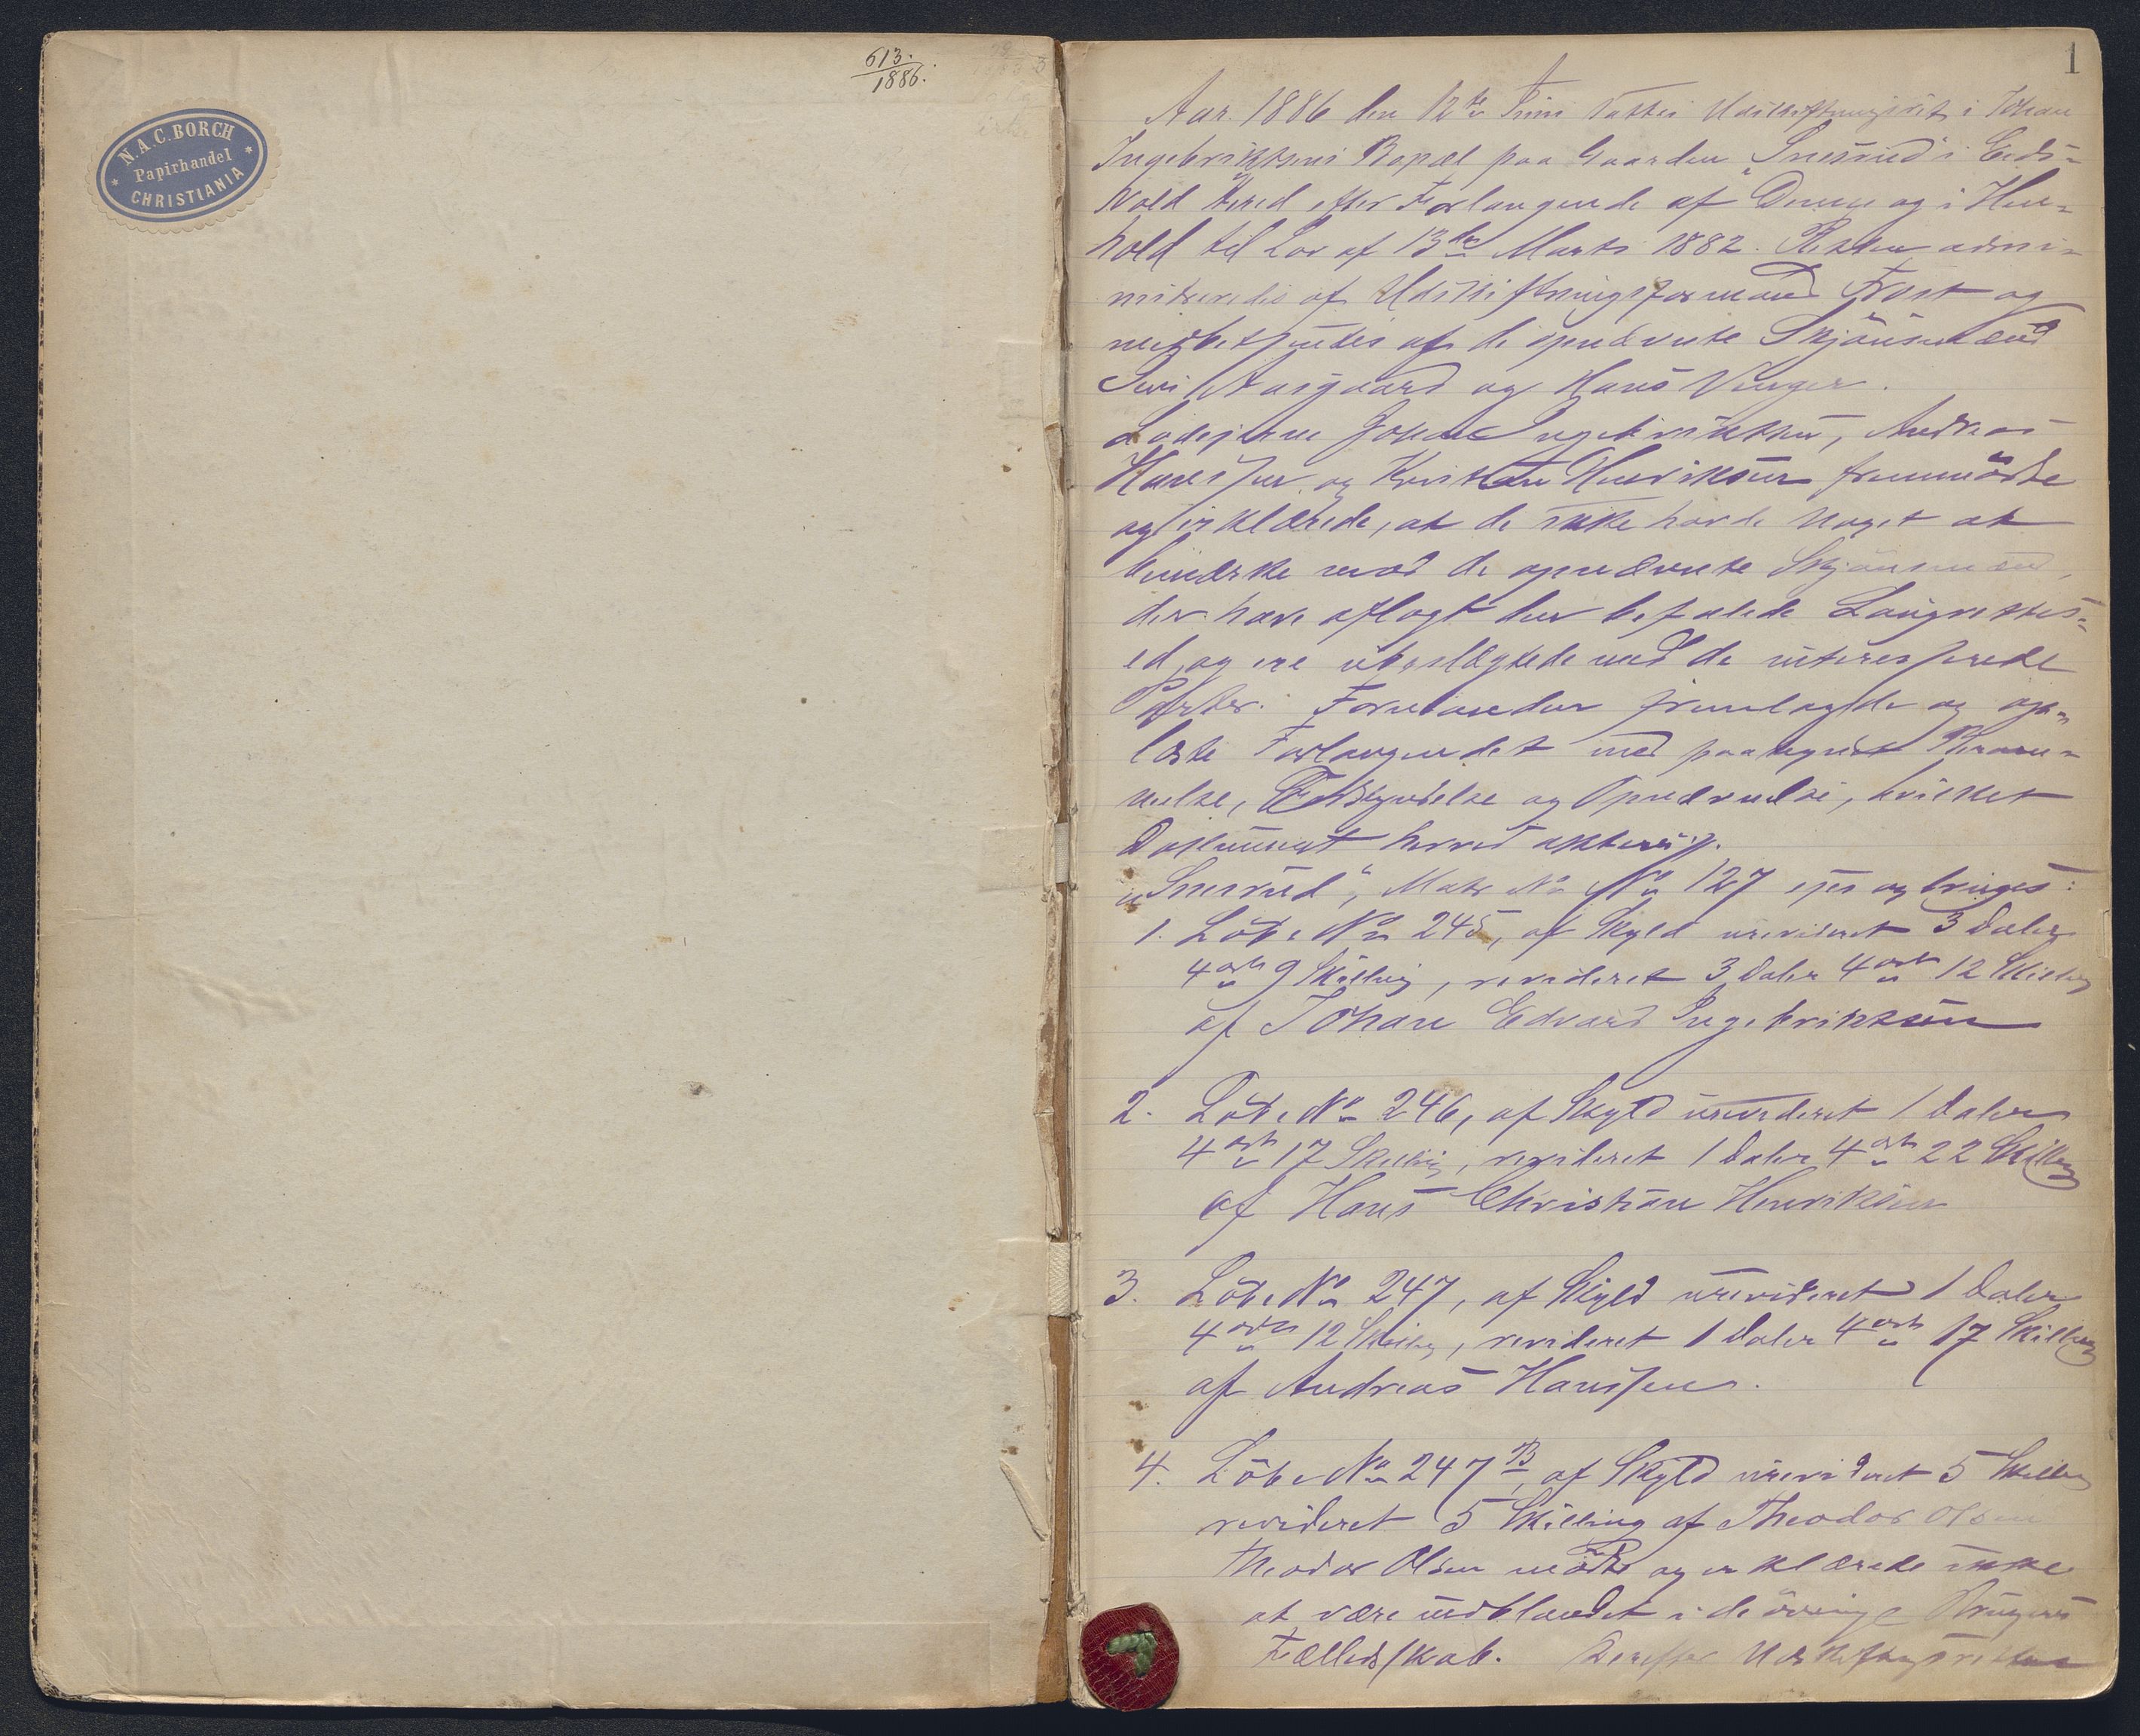 613.
1886.
N. A. C. BORCH
Papirhandel
CHRISTIANIA
1
Aar 1886 den 12te Juni sattes Udskiftningsret i Johan
Ingebrigtsens Bopæl paa Gaarden "Snesrud" i Eids-
vold Hered efter Forlangende af Denne og i Hen-
hold til Lov af 13de Marts 1882. Retten admi-
nistreredes af Udskiftningsformand Frost og
medbetjentes af de opnævnte Skjönsmænd
Aasgaard og Hans Vinger.
Lodejerne Johan Ingebriktsen, Andreas
Hanssen og Kristian Henriksen fremmödte
og erklærede, at de ikke havde noget at
bemærke mod de opnævnte Skjönsmænd,
der have aflagt den befalede Laugrettes-
ed, og ere ubeslægtede med de interesserede
Parter. Formanden fremlagde og op-
læste Forlangendet med paategnet Beram-
melse, og Opnævnelse, hvilket
Dokument herved akteres.
"Snesrud", Matr No No 127 ejes og bruges:
1. Löbe No 245, af Skyld urevideret 3 Daler
4 ort 9 Skilling, revideret 3 Daler 4 ort 12 Skilling
af Johan Edvard Ingebriktsen
2. Löbe No 246, af Skyld urevideret 1 Daler
4 ort 17 Skilling, revideret 1 Daler 4 ort 22 Skilling
af Hans Christian Henriksen
3. Löbe No 247, af Skyld urevideret 1 Daler
4 ort 12 Skilling, revideret 1 Daler 4 ort 17 Skilling
af Andreas Hanssen.
4. Löbe No 247 B, af Skyld urevideret 5 Skilling
revideret 5 Skilling af Theodor Olsen
Theodor Olsen mödte og erklærede ikke
at være indblandet i de övrige Brugeres
Fælledsskab. Derefter Udskiftningsretten